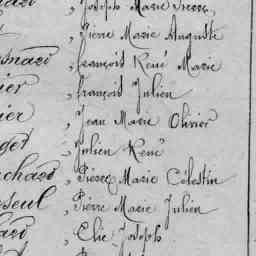 Joseph Marie Pierre
, Pierre Marie Auguste
, François René Marie
ier , François Julien
ier , Jean Marie Olivier
get , Julien René
chard , Pierre Marie Célestin
seul , Pierre Marie Julien
ard , Elie Joseph